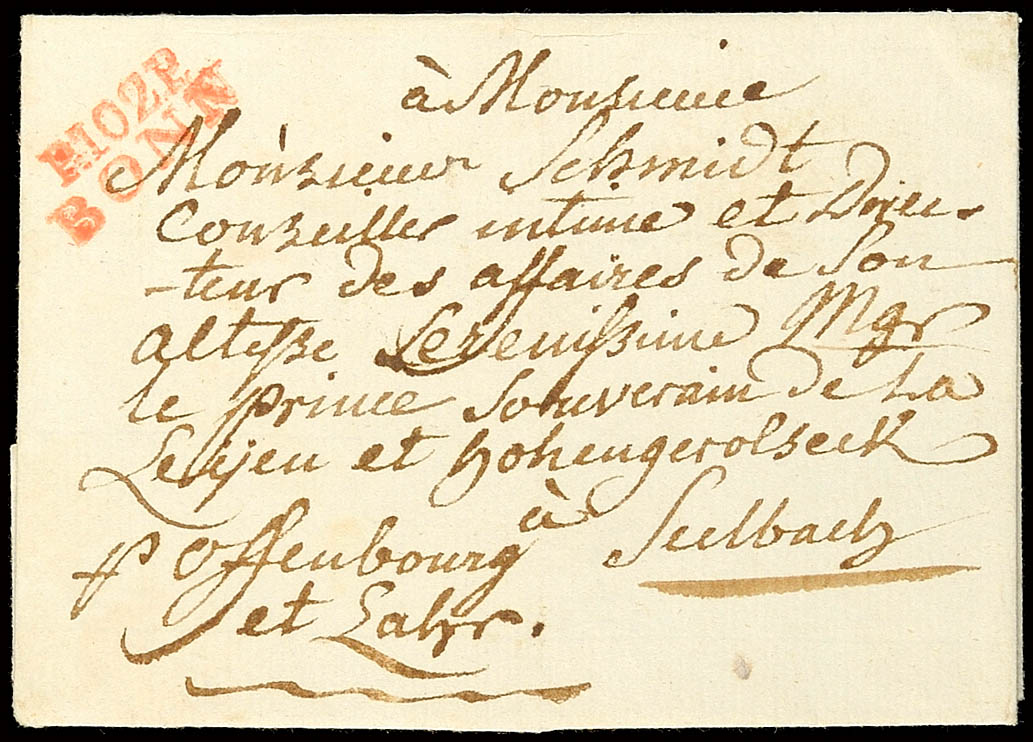 P102P
BONN
à Monsieur
Monsieur Schmidt
Conseiller intime et Direc-
-teur des affaires de Son
Altesse Serenissime Mgr
le prince Souverain de La
Leÿen et Hohengerolseck
à Seelbach
p Offenbourg
et Lahr.